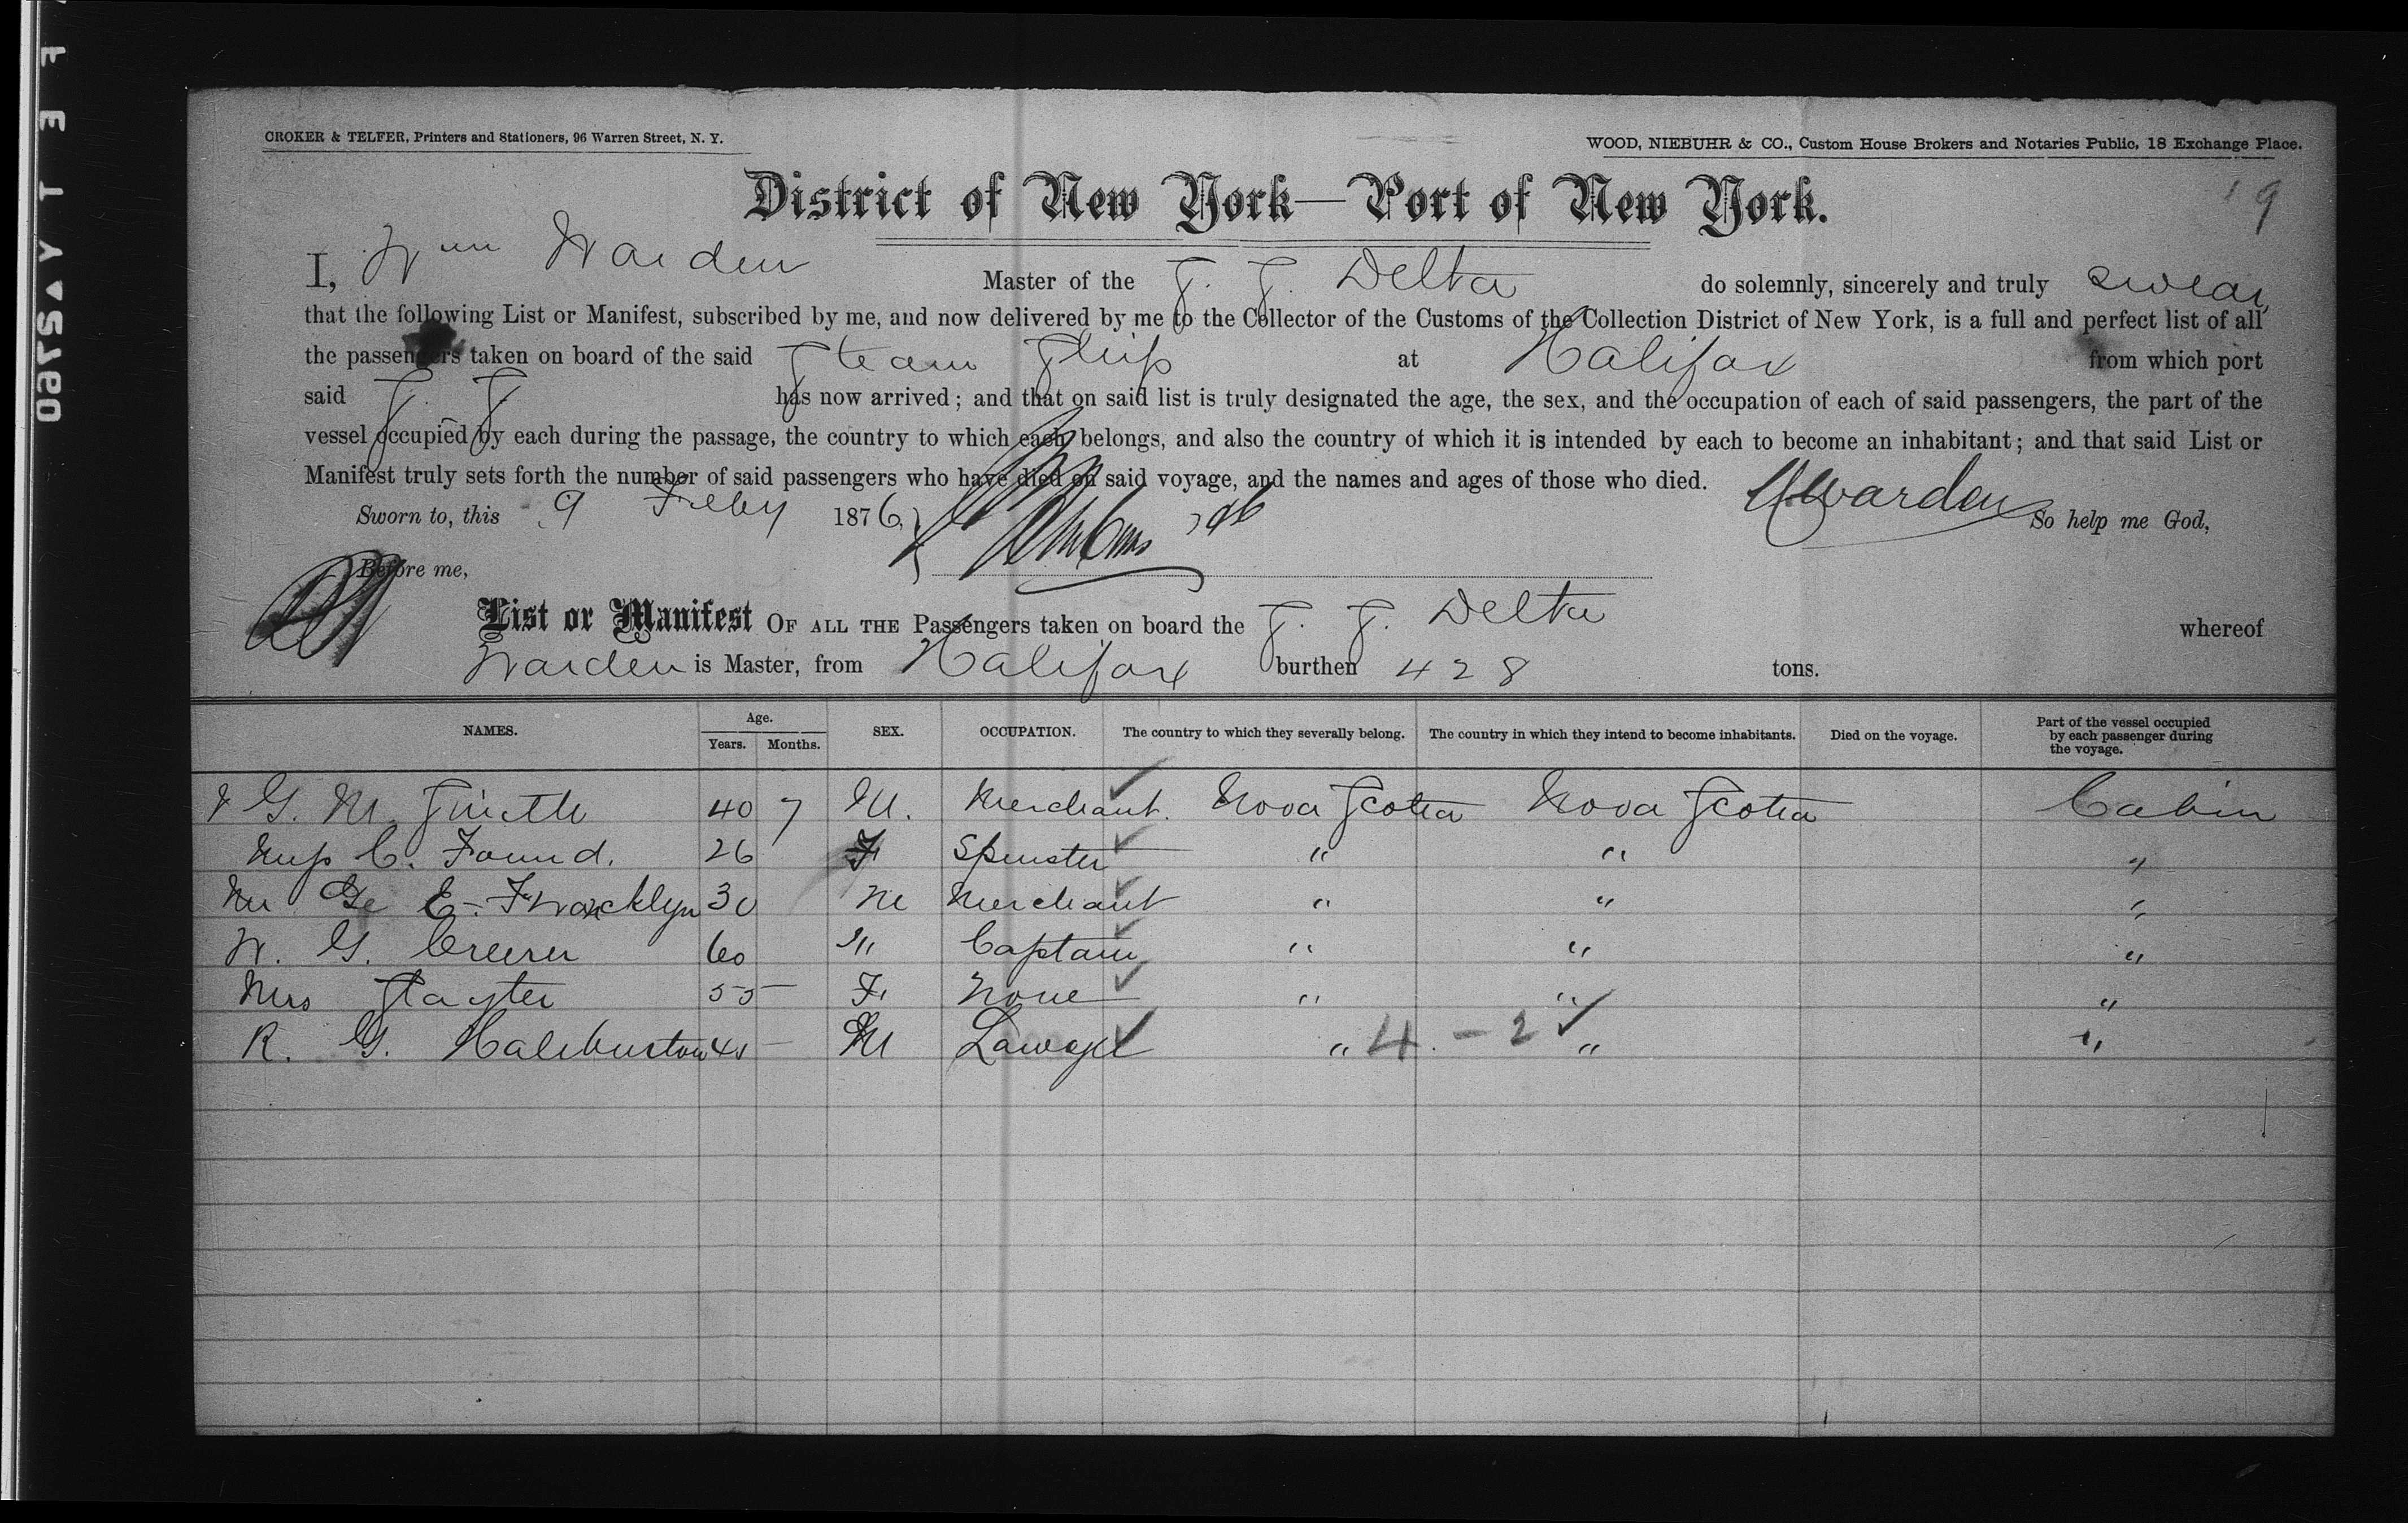 CROKER & TELFER, Printers and Stationers, 96 Warren Street, N. Y.
WOOD, NIEBUHR & CO., Custom House Brokers and Notaries Public, 18 Exchange Place.
District of New York—Port of New York.
19
I, Wm Warden Master of the S. S. Delta do solemnly, sincerely and truly swear
that the following List or Manifest, subscribed by me, and now delivered by me to the Collector of the Customs of the Collection District of New York, is a full and perfect list of all
the passengers taken on board of the said Steam Ship at Halifax from which port
said S. S. has now arrived; and that on said list is truly designated the age, the sex, and the occupation of each of said passengers, the part of the
vessel occupied by each during the passage, the country to which each belongs, and also the country of which it is intended by each to become an inhabitant; and that said List or
Manifest truly sets forth the number of said passengers who have died on said voyage, and the names and ages of those who died. Warden
Sworn to, this 9 Feby 1876, So help me God,
Before me,
List or Manifest OF ALL THE Passengers taken on board the S. S. Delta whereof
Warden is Master, from Halifax burthen 428 tons.
NAMES. Age. Years. Months. SEX. OCCUPATION. The country to which they severally belong. The country in which they intend to become inhabitants. Died on the voyage. Part of the vessel occupied by each passenger during the voyage.
G. M. Smith 40 7 M. Merchant. Nova Scotia Nova Scotia Cabin
Miss C. Found. 26 F Spinster " " "
Mr Ge E. Francklyn 30 M Merchant " " "
W. G. 60 " Captain " " "
Mrs Slayter 55 F None " " "
R. G. Haliburton 45 M Lawyer " 4 - 2 ✓ " "